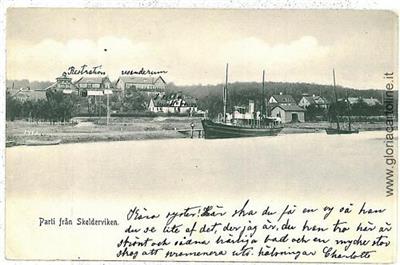 Restration
Parti från Skelderviken.
Kära syster! Här ska du få en ny så kan
du se lite af det der jag är, du kan tro här är
skönt och sådna härliga bad och en mycke stor
skog att promenera uti. helsningar Charlotte
www.gloriacartoline.it